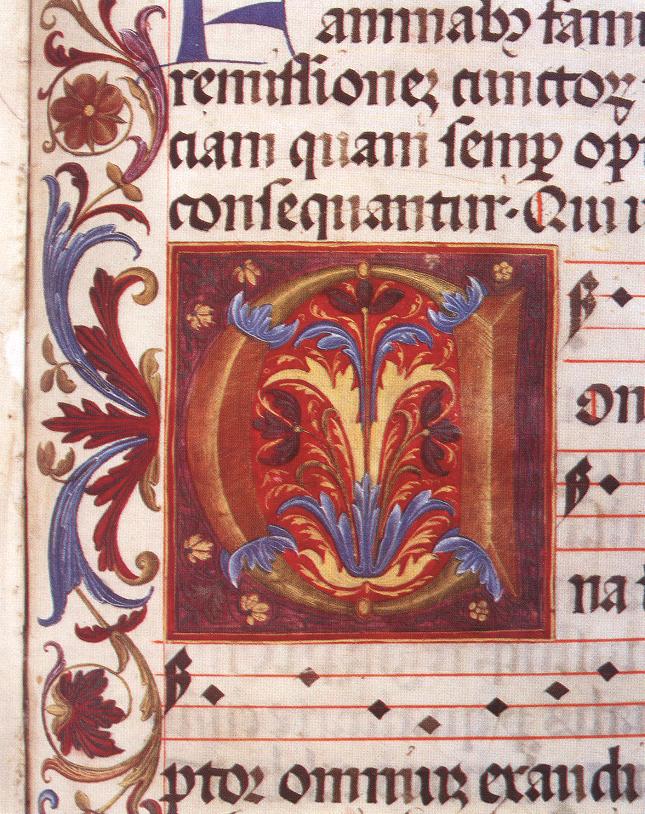 animabꝫ famu
remiſſioneꝫ cunctoꝝ
ciam quam ſemꝑ opt
conſequantur· Qui
C on
na
ptor omniuꝫ exaudi